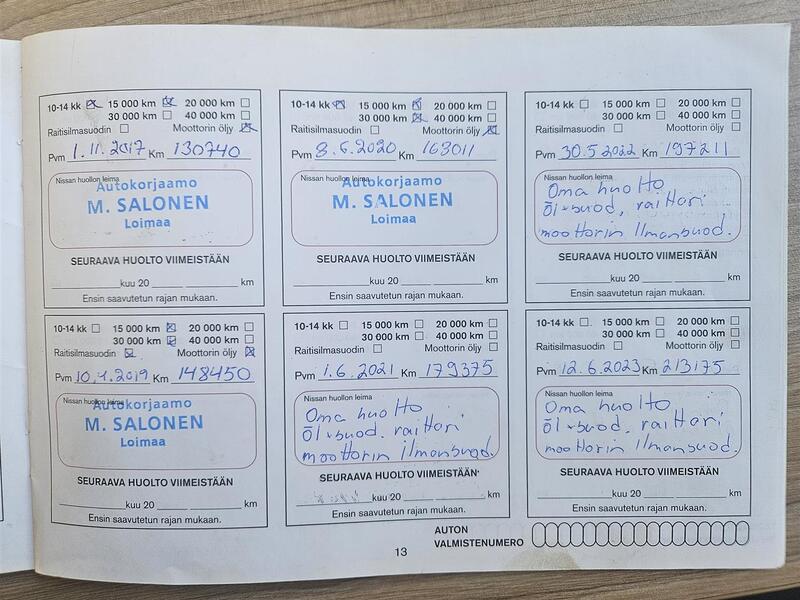 10-14 kk 15 000 km 20 000 km
30 000 km 40 000 km
Raitisilmasuodin Moottorin öljy
Pvm 1.11.2017 Km 130740
Nissan huollon leima
Autokorjaamo
M. SALONEN
Loimaa
SEURAAVA HUOLTO VIIMEISTÄÄN
kuu 20 km
Ensin saavutetun rajan mukaan.
10-14 kk 15 000 km 20 000 km
30 000 km 40 000 km
Raitisilmasuodin Moottorin öljy
Pvm 10.4.2019 Km 148450
Nissan huollon leima
Autokorjaamo
M. SALONEN
Loimaa
SEURAAVA HUOLTO VIIMEISTÄÄN
kuu 20 km
Ensin saavutetun rajan mukaan.
10-14 kk 15 000 km 20 000 km
30 000 km 40 000 km
Raitisilmasuodin Moottorin öljy
Pvm 8.6.2020 Km 163011
Nissan huollon leima
Autokorjaamo
M. SALONEN
Loimaa
SEURAAVA HUOLTO VIIMEISTÄÄN
kuu 20 km
Ensin saavutetun rajan mukaan.
10-14 kk 15 000 km 20 000 km
30 000 km 40 000 km
Raitisilmasuodin Moottorin öljy
Pvm 1.6.2021 Km 179375
Nissan huollon leima
Oma huolto
öl+suod. raittari
moottorin ilmansuod.
SEURAAVA HUOLTO VIIMEISTÄÄN
kuu 20 km
Ensin saavutetun rajan mukaan.
10-14 kk 15 000 km 20 000 km
30 000 km 40 000 km
Raitisilmasuodin Moottorin öljy
Pvm 30.5.2022 Km 197211
Nissan huollon leima
Oma huolto
öl+suod, raittari
moottorin Ilmansuod.
SEURAAVA HUOLTO VIIMEISTÄÄN
kuu 20 km
Ensin saavutetun rajan mukaan.
10-14 kk 15 000 km 20 000 km
30 000 km 40 000 km
Raitisilmasuodin Moottorin öljy
Pvm 12.6.2023 Km 213175
Nissan huollon leima
Oma huolto
öl+suod, raittari
moottorin Ilmansuod.
SEURAAVA HUOLTO VIIMEISTÄÄN
kuu 20 km
Ensin saavutetun rajan mukaan.
13
AUTON
VALMISTENUMERO